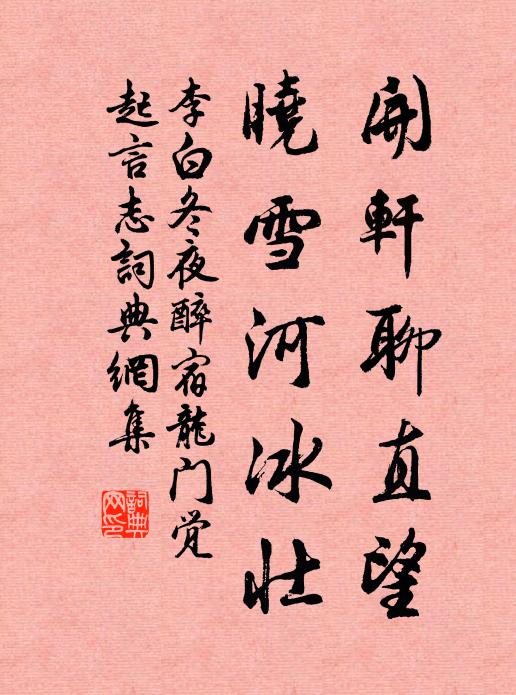 開軒聊直望
曉雪河冰壮
李白冬夜醉宿龍门觉
起言志詞典網集
詞典
网印